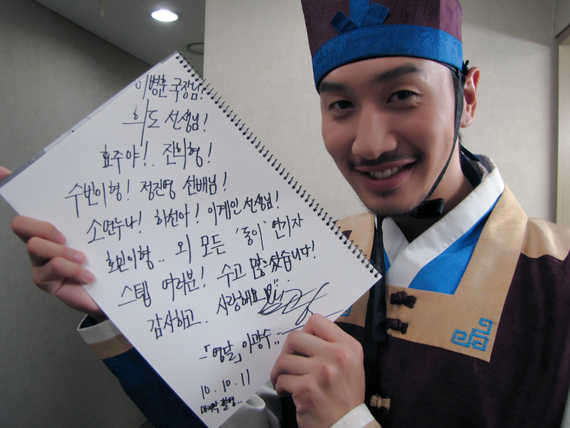 이병훈 국장님!
희도 선생님!
효주야!.. 진희형!
수빈이형! 정진영 선배님!
소연누나! 하선아! 이계인 선생님!
효빈이형.. 외 모든 '동이' 연기자
스텝 여러분! 수고 많으셨습니다!
감사하고.. 사랑해요
-「영달」이광수..
10. 10. 11
마지막 촬영..